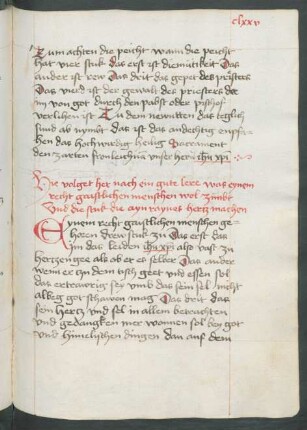 clxxv
Zum achten die peicht wann die peicht
hat vier stuk das erst ist diemütikeit Das
ander ist rew Das drit das gepet des pristers
Das vierd ist der gewalt des priesters der
im von got durch den pabst oder pischof
verlihen ist Zu dem newnten das teglich
sünd ab nymbt das ist das andechtig enpfa-
hen das hochwirdig heilig Sacrament
den zarten fronleichnam unser herrn ihu xpi
Hie volget her nach ein gute lere was eynem
recht geistlichen menschen wol zimbt
Und die stuk die ayn raynes hertz machen
Eynem recht geistlichen menschen ge-
hören drew stuk zu Das erst das
im das leiden ihu xpi also vast zu
hertzen gee als ob er es selber Das ander
wenn er zu dem tisch geet und essen sol
das er trawrig sey umb das sein sel nicht
albeg got schawen mag Das drit das
sein hertz und sel in allem betrachten
und gedangken mer wonnen sol bey got
und himelischen dingen dan auf dem